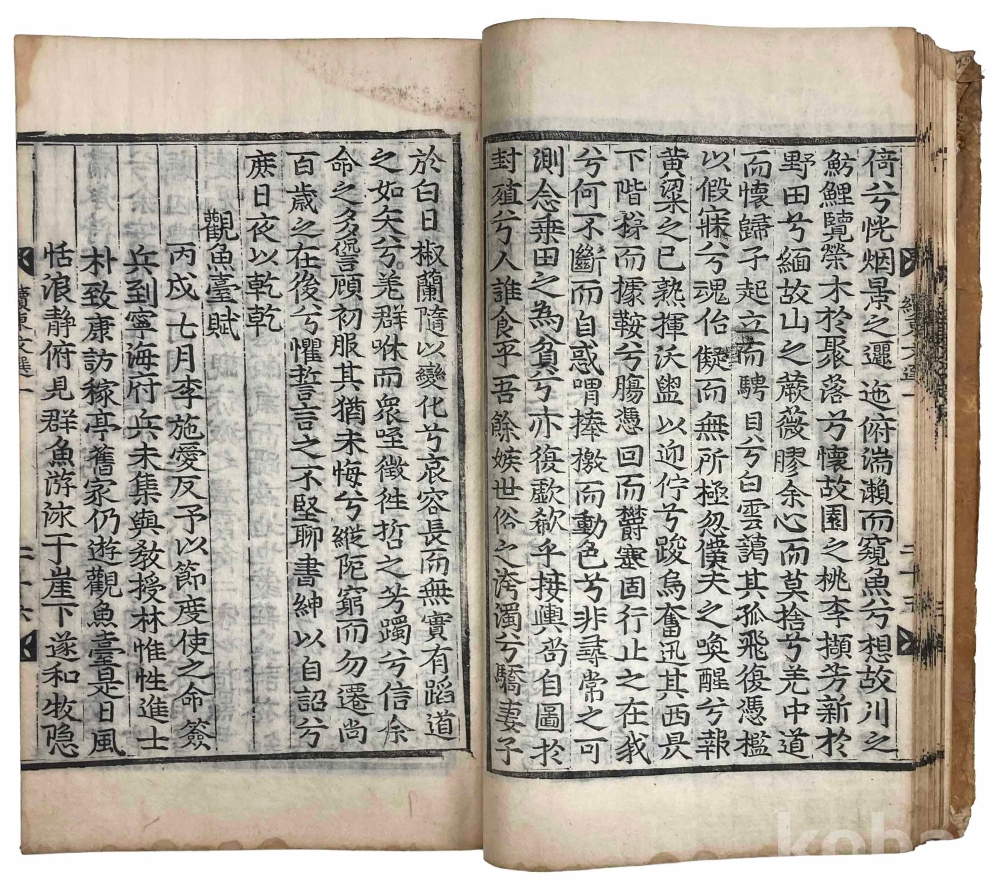 倚兮恍烟景之邐迤俯湍瀨而窺魚兮想故川之
魴鯉覽榮木於聚落兮懷故園之桃李擷芳新於
野田兮緬故山之蕨薇膠余心而莫捨兮羌中道
而懷歸子起立而騁目兮白雲藹其孤飛復憑檻
以假寐兮魂佁儗而無所極忽僕夫之喚醒兮報
黃粱之已熟揮沃盥以迎佇兮踆烏奮迅其西畏
下階撐而據鞍兮膓憑回而欝塞固行止之在我
兮何不斷而自惑喟捧檄而動色兮非尋常之可
測念乗田之為貧兮亦復歔欷乎接輿尙自圖於
封殖兮人誰食乎吾餘嫉世俗之溷濁兮驕妻子
續東文選一
二十五
於白日椒蘭隨以變化兮哀容長而無實有蹈道
之如矢兮羗群咻而衆咥徵徃哲之芳躅兮信余
命之多諐顧初服其猶未悔兮縱阨窮而勿遷尚
百歲之在後兮懼誓言之不堅聊書紳以自詔兮
庶日夜以乾乾
觀魚臺賦
丙戍七月李施愛反予以節度使之命簽
兵到寧海府兵未集與敎授林惟性進士
朴致康訪稼亭舊家仍遊觀魚臺是日風
恬浪静俯見群魚游泳于崖下遂和牧隐
續東文選一
二十六
koba